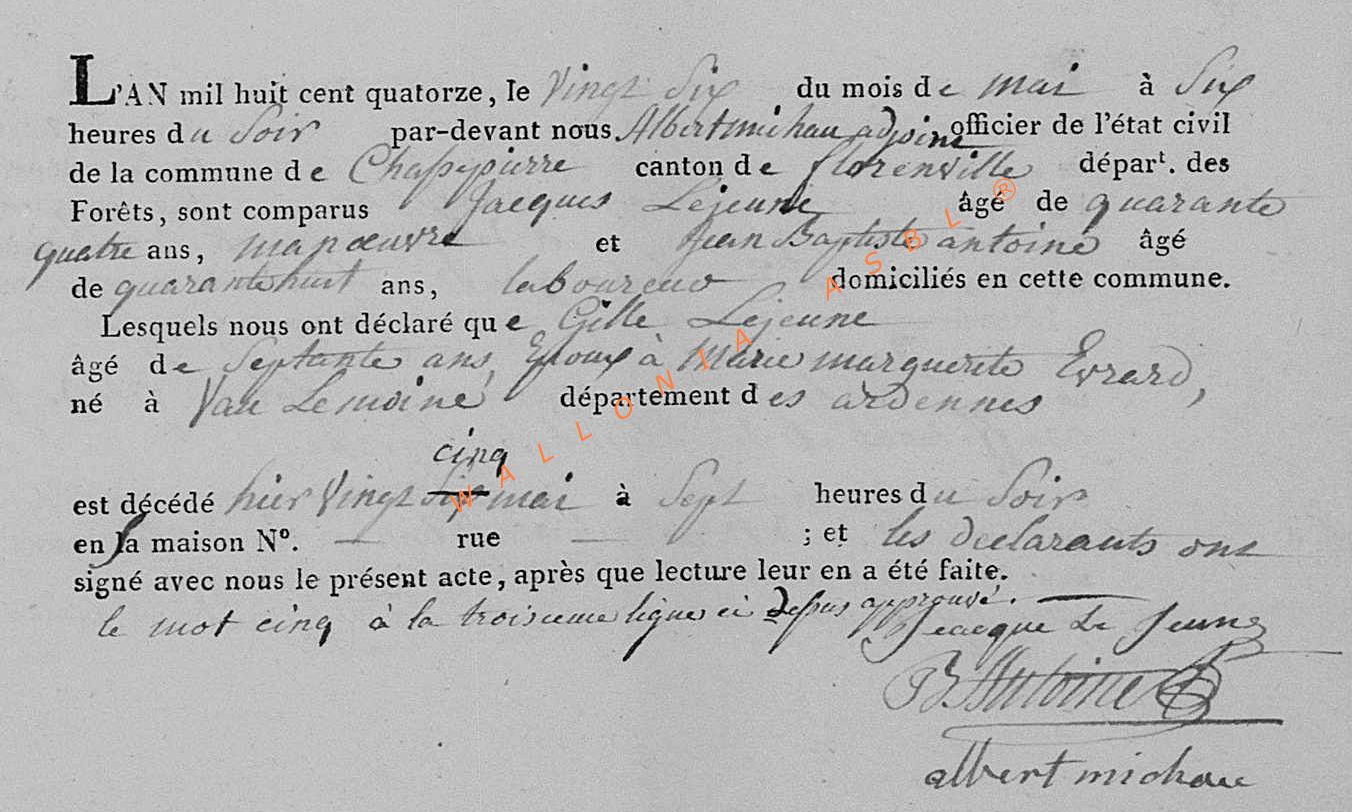 L'AN mil huit cent quatorze, le Vingt Six du mois de mai à Six
heures du Soir par-devant nous Albert michau adjoint officier de l'état civil
de la commune de Chassepierre canton de florenville dépar^t. des
Forêts, sont comparus Jacques Lejeune âgé de quarante
quatre ans, manœuvre et Jean Baptiste antoine âgé
de quarante huit ans, laboureur domiciliés en cette commune.
Lesquels nous ont déclaré que Gille Lejeune
âgé de Septante ans, Epoux à Marie marguerite Evrard,
né à Vau Lemoine département des ardennes
cinq
est décédé hier Vingt Six mai à Sept heures du Soir
en sa maison N°. — rue — ; et les declarants ont
signé avec nous le présent acte, après que lecture leur en a été faite.
le mot cinq à la troisieme ligne ci Dessus approuvé.
Jeacque Le Jeune
JB Antoine
albert michau
WALLONIA ASBL ®